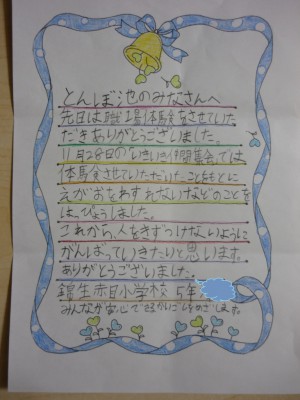 とんぼ池のみなさんへ
先日は職場体験をさせていた
だきありがとうございました。
11月28日の「いきいき仲間集会」では
体験させていただいたことをもとに
えがおをわすれないなどのことを
はっぴょうしました。
これから、人をきずつけないように
がんばっていきたいと思います。
ありがとうございました。
錦生赤目小学校 5年
みんなが安心で